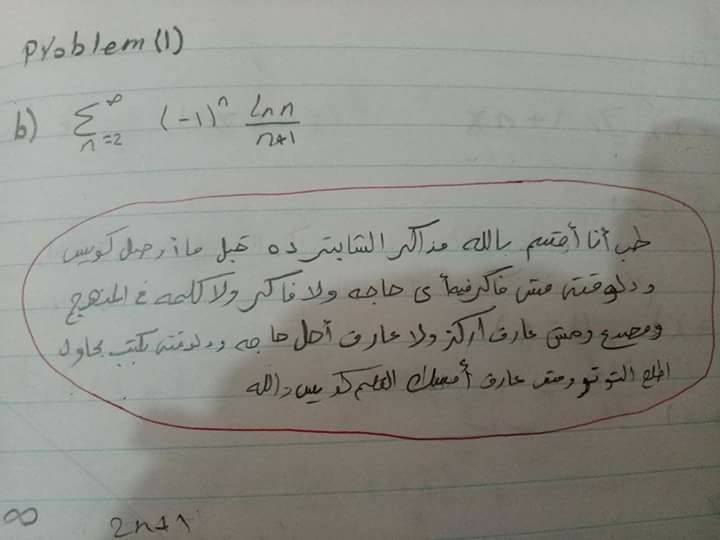 Problem (1)
b) ∑_{n=2}^{∞} (-1)^n \frac{ln n}{n+1}
طب أنا أقسم بالله مذاكر الشابتر ده قبل ما أوصل كويس
ودلوقتى مش فاكر فيه أى حاجه ولا فاكر ولا كلمه فى المنهج
ومصدع ومش عارف أركز ولا عارف أحل حاجه ودلوقتى بكتب بحاول
التوتر ومش عارف أمسك القلم كويس والله
∞ 2n+1